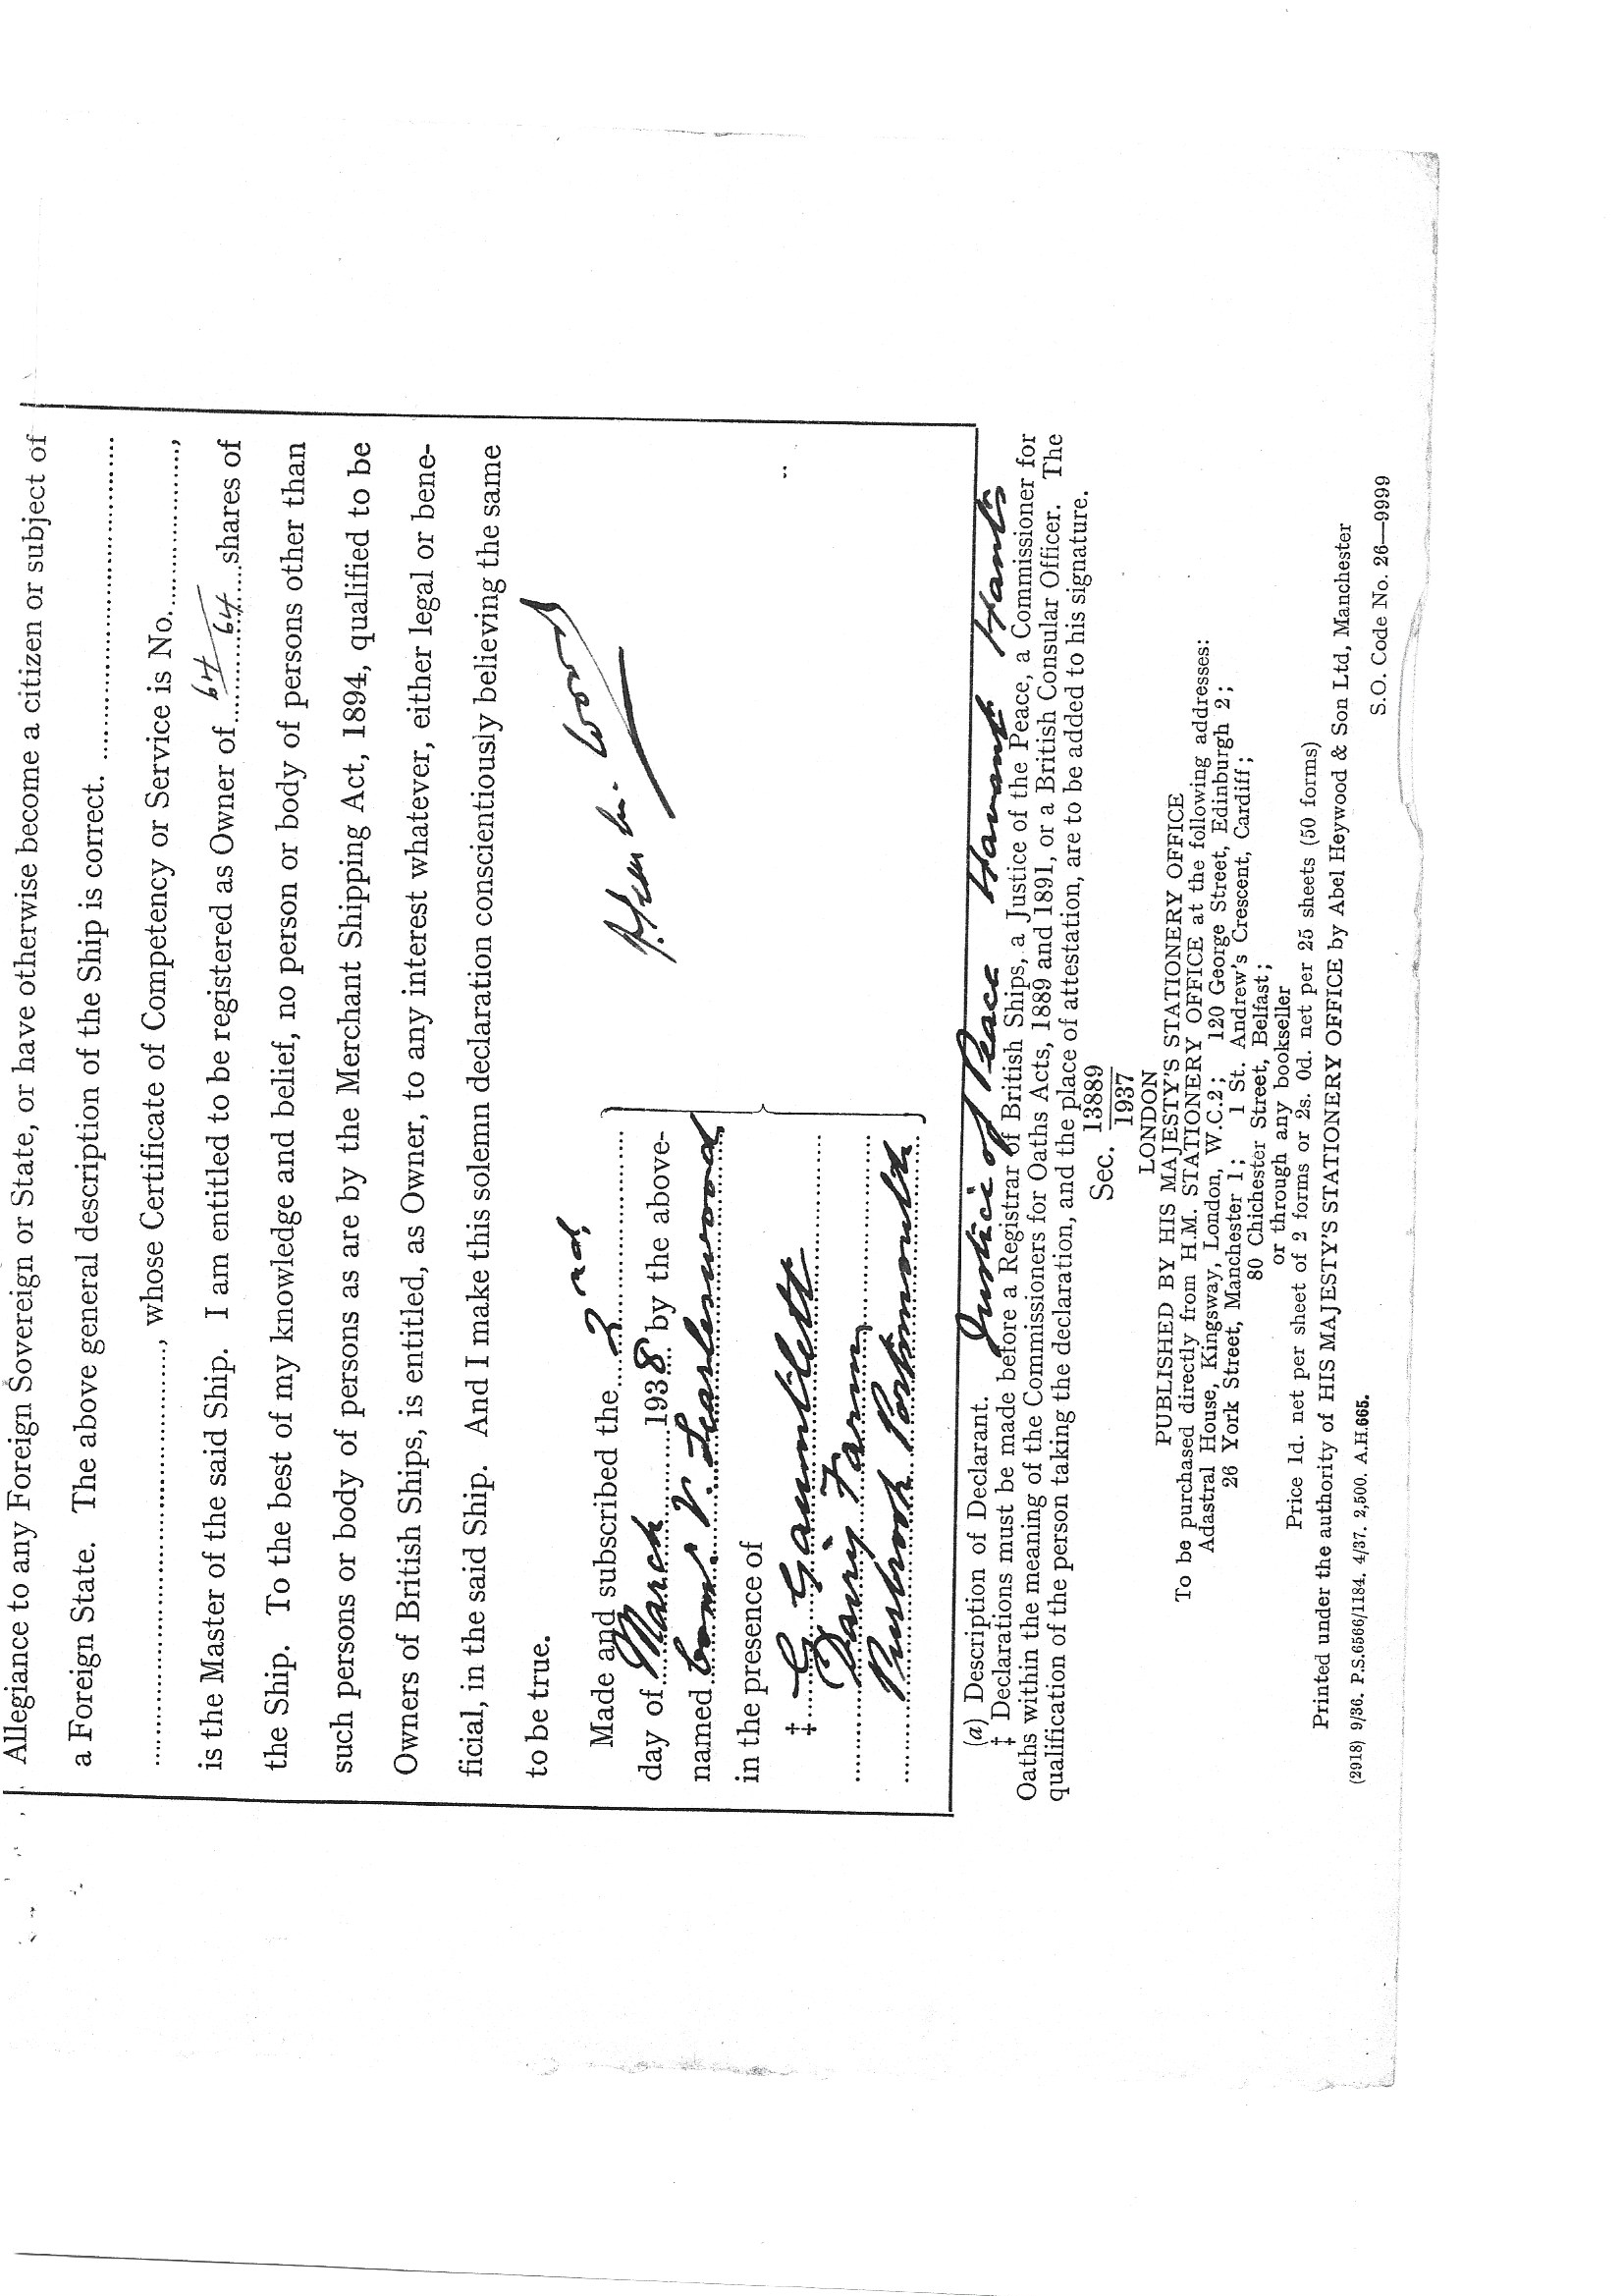 Allegiance to any Foreign Sovereign or State, or have otherwise become a citizen or subject of
a Foreign State. The above general description of the Ship is correct. ..............................
........................................, whose Certificate of Competency or Service is No..............,
is the Master of the said Ship. I am entitled to be registered as Owner of 64/64 shares of
the Ship. To the best of my knowledge and belief, no person or body of persons other than
such persons or body of persons as are by the Merchant Shipping Act, 1894, qualified to be
Owners of British Ships, is entitled, as Owner, to any interest whatever, either legal or bene-
ficial, in the said Ship. And I make this solemn declaration conscientiously believing the same
to be true.
Made and subscribed the 2nd
day of March 1938 by the above-
named V.
in the presence of
‡ G Gauntlett
Dairy Farm,
Purbrook Portsmouth.
Justice of Peace Havant Hants
(a) Description of Declarant.
‡ Declarations must be made before a Registrar of British Ships, a Justice of the Peace, a Commissioner for
Oaths within the meaning of the Commissioners for Oaths Acts, 1889 and 1891, or a British Consular Officer. The
qualification of the person taking the declaration, and the place of attestation, are to be added to his signature.
Sec. 13889/1937
LONDON
PUBLISHED BY HIS MAJESTY'S STATIONERY OFFICE
To be purchased directly from H.M. STATIONERY OFFICE at the following addresses:
Adastral House, Kingsway, London, W.C.2; 120 George Street, Edinburgh 2;
26 York Street, Manchester 1; 1 St. Andrew's Crescent, Cardiff;
80 Chichester Street, Belfast;
or through any bookseller
Price 1d. net per sheet of 2 forms or 2s. 0d. net per 25 sheets (50 forms)
Printed under the authority of HIS MAJESTY'S STATIONERY OFFICE by Abel Heywood & Son Ltd, Manchester
(2918) 9/36. P.S.6566/1184. 4/37. 2,500. A.H.665.
S.O. Code No. 26—9999